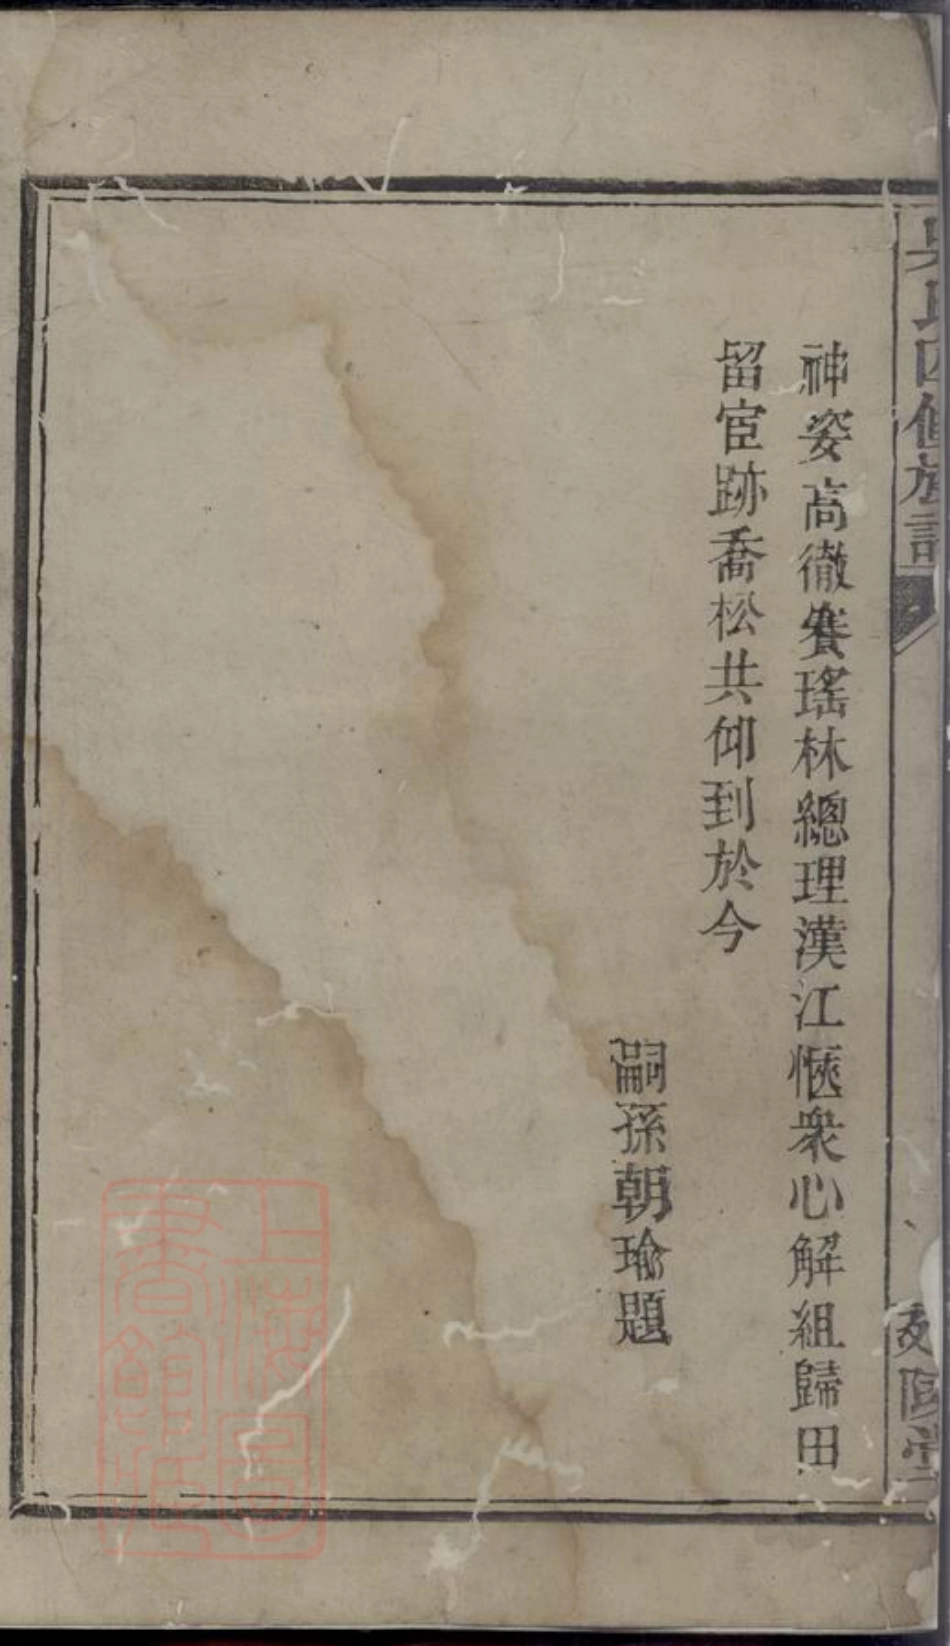 吳氏四修族譜
神姿高徹賽瑤林總理漢江愜衆心解組歸田
留宦跡喬松共仰到於今
嗣孫朝瑜題
堂
上海圖
書館藏